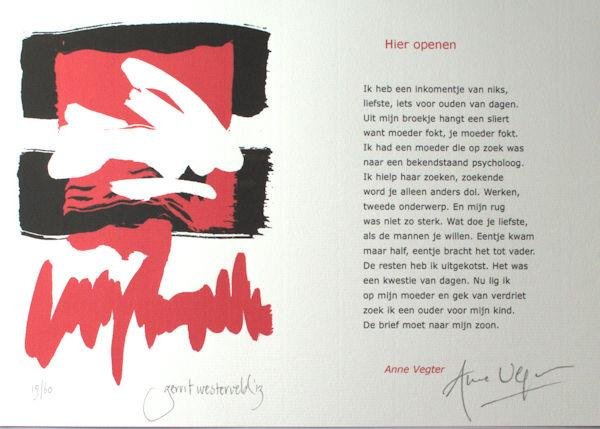 Hier openen
Ik heb een inkomentje van niks,
liefste, iets voor ouden van dagen.
Uit mijn broekje hangt een sliert
want moeder fokt, je moeder fokt.
Ik had een moeder die op zoek was
naar een bekendstaand psycholoog.
Ik hielp haar zoeken, zoekende
word je alleen anders dol. Werken,
tweede onderwerp. En mijn rug
was niet zo sterk. Wat doe je liefste,
als de mannen je willen. Eentje kwam
maar half, eentje bracht het tot vader.
De resten heb ik uitgekotst. Het was
een kwestie van dagen. Nu lig ik
op mijn moeder en gek van verdriet
zoek ik een ouder voor mijn kind.
De brief moet naar mijn zoon.
Anne Vegter
Anne Vegter
15/60
gerrit westerveld '13